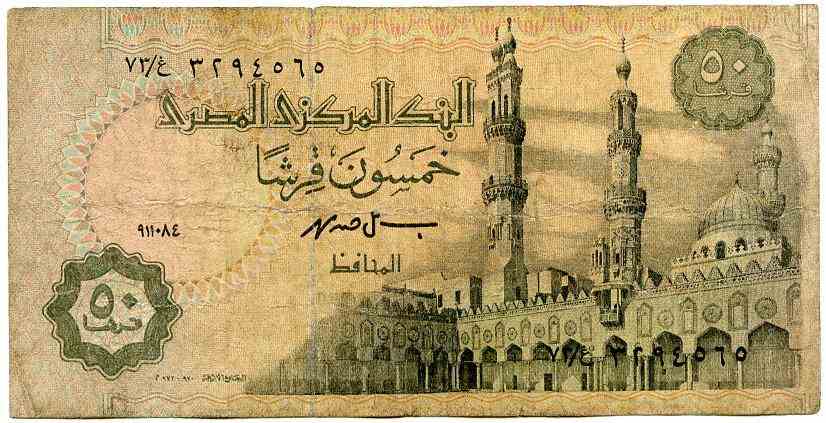 ٧٣/غ ٣٢٩٤٥٦٥
٥٠
قرشاً
البنك المركزى المصرى
خمسون قرشًا
٩١١٠٨٤
المحافظ
٥٠
قرشاً
٧٣/غ ٣٢٩٤٥٦٥